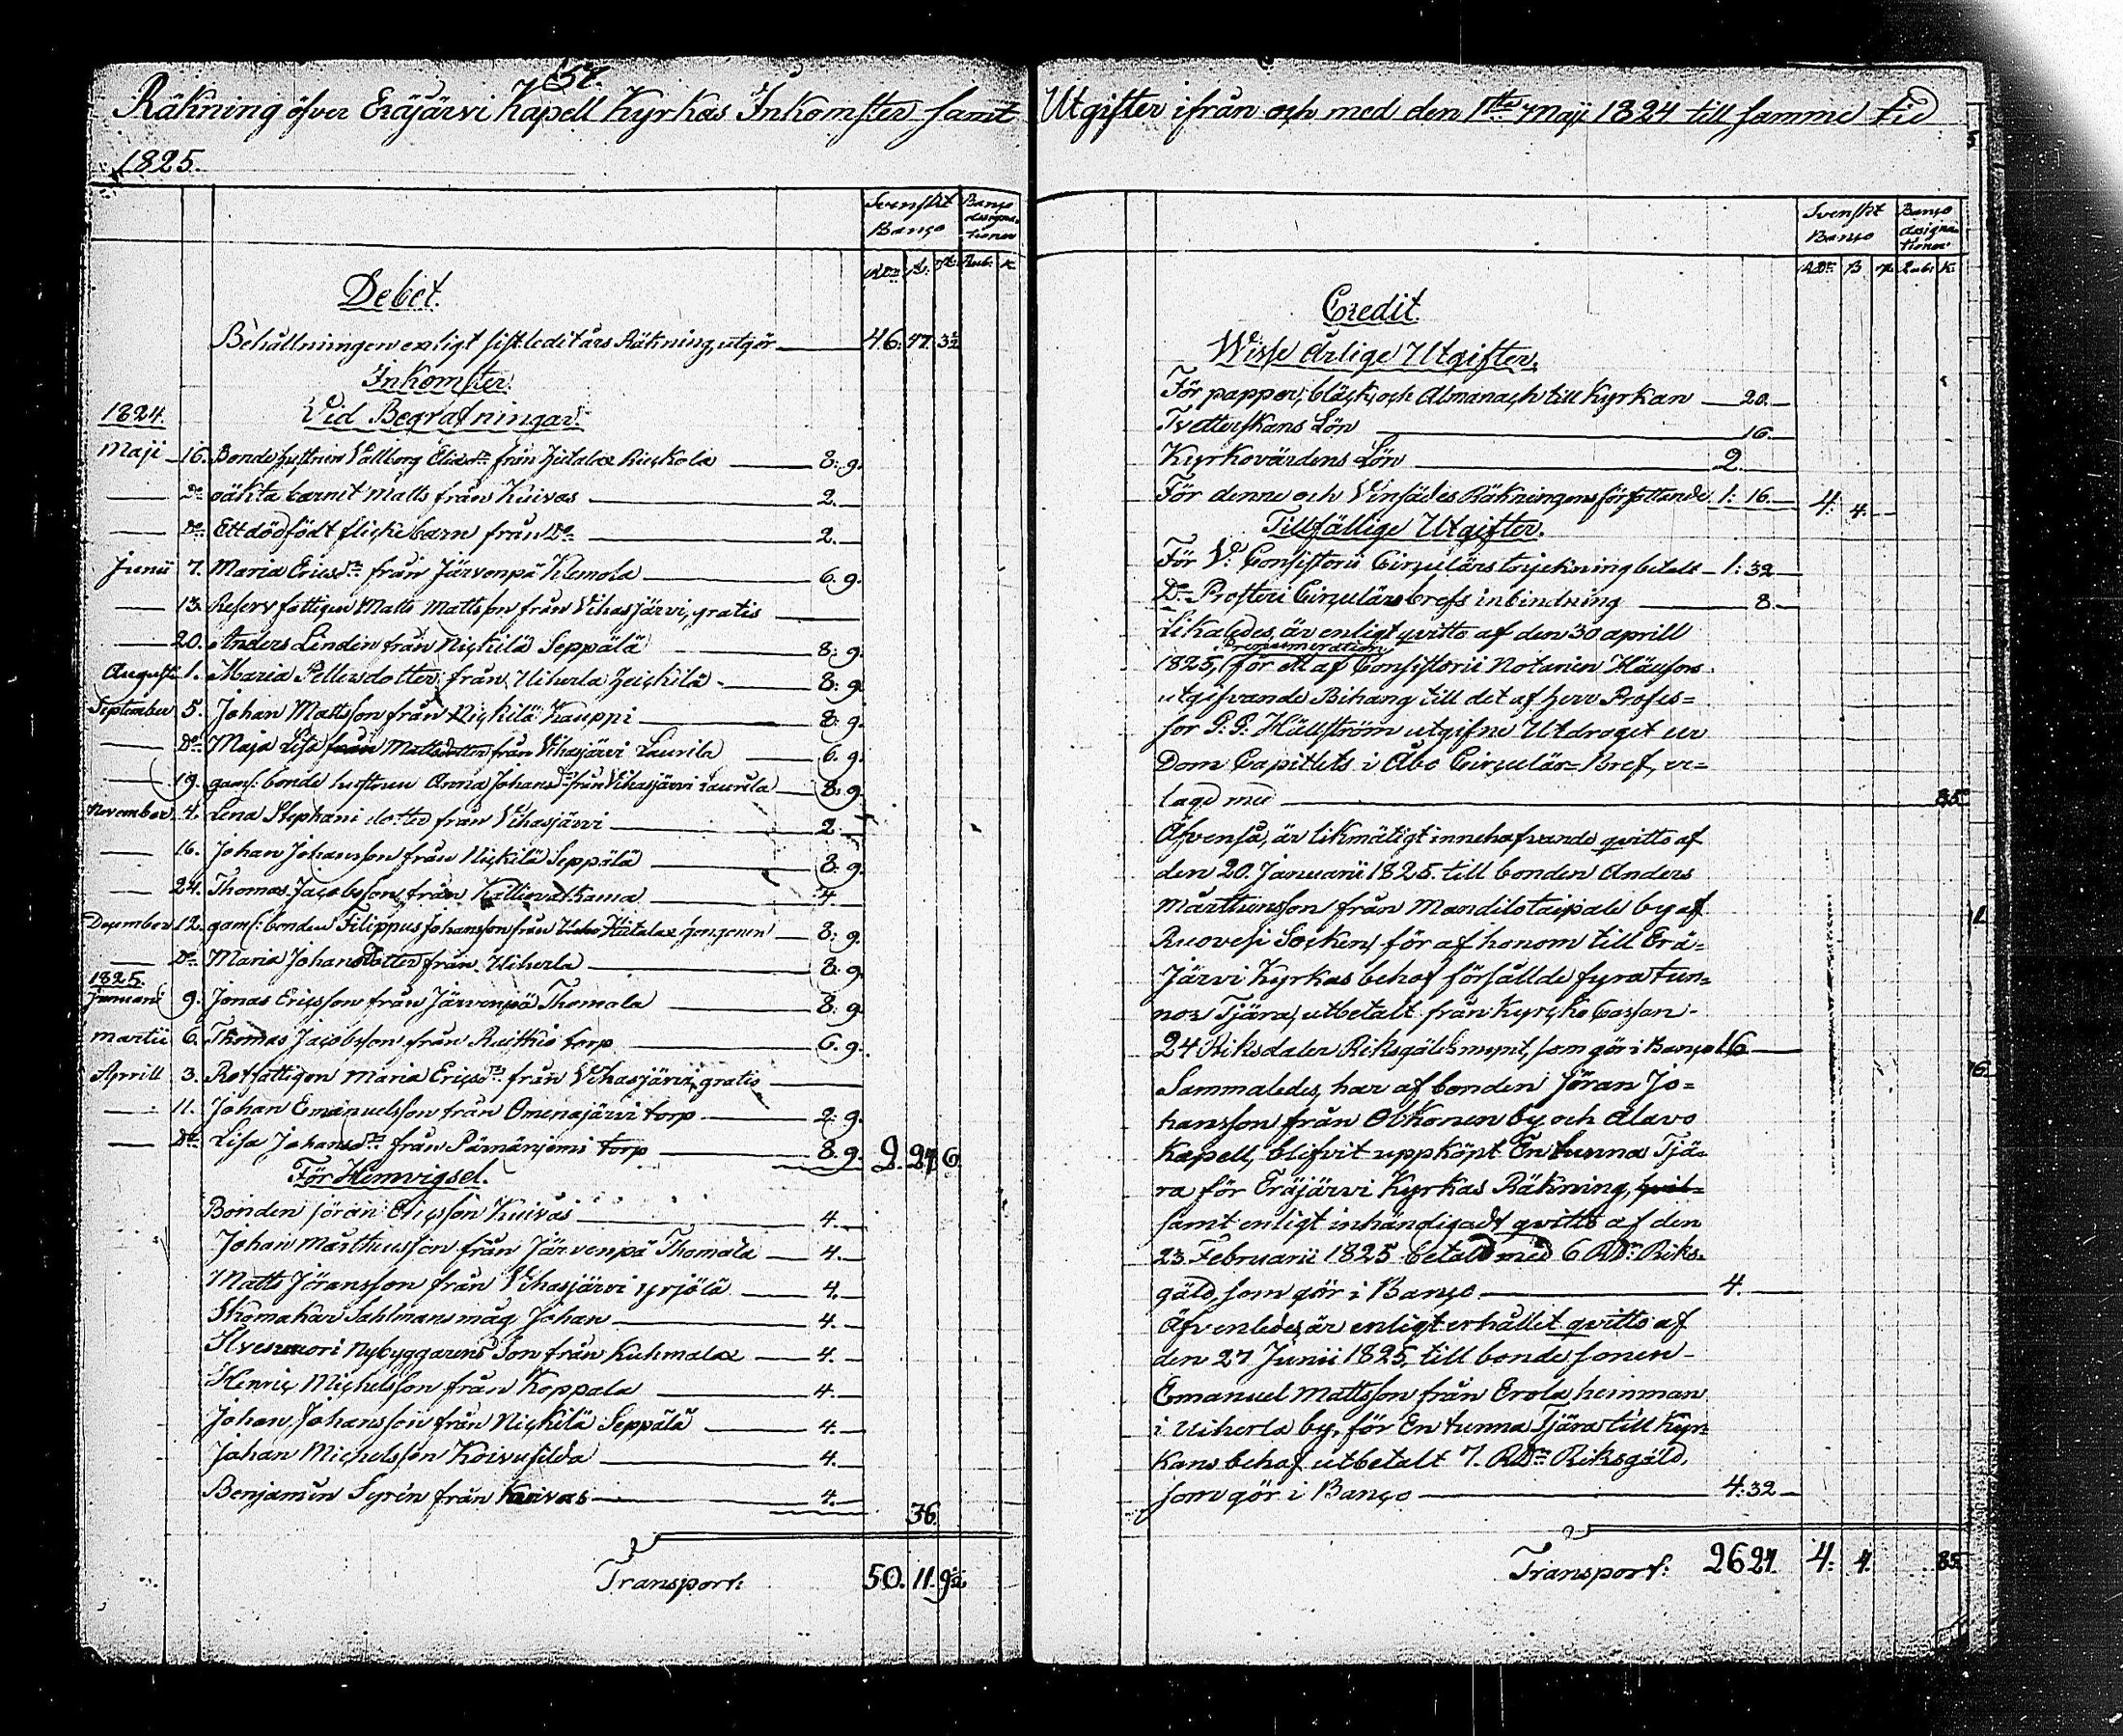 57.
Räkning öfver Eräjärvi Kapell Kyrkas Inkomster samt Utgifter ifrån och med den 1sta Maji 1824 till samme tid
1825.
Svenskt Banço
Banço assigna- tioner
RDr ß. rst. Rub: K.
Debet.
Behållningen enligt sistledit års Räkning, utgör 46. 47. 3½
Inkomster.
1824. Vid Begrafningar.
Maji 16. Bonde hustrun Vallborg Eliædr från Hietalax Riçkola 8: 9.
Do oäkta barnet Matts från Kuivas 2.
Do Ett dödfödt flicke barn från Do 2.
Junii 7. Maria Ericsdr från Järvenpä Klemola 6. 9.
13. Reserv fattigen Matts Mattsson från Vihasjärvi, gratis
20. Anders Lindin från Niçkilä Seppälä 8: 9.
Augusti 1. Maria Pettersdotter från Uiherla Heiçkilä 8: 9.
September 5. Johan Mattsson från Niçkilä Kauppi 8: 9.
Do Maja Lisa från Mattsdotter från Vihasjärvi Laurila 6. 9.
19. gaml: bonde hustrun Anna Johansdr från Vihasjärvi Laurila 8: 9.
November 4. Lena Stephani dotter från Vihasjärvi 2.
16. Johan Johansson från Niçkilä Seppälä 8: 9.
24. Thomas Jacobsson från Kallionalkama 4
December 12. gaml: bonden Filippus Johansson från Hietalax 8: 9.
Do Maria Johansdotter från Uiherla 8: 9.
1825.
Januarii 9. Jonas Ericsson från Järvenpä Thomala 8: 9.
Martii 6. Thomas Jacobsson från Ruithio torp 6. 9.
Aprill 3. Rotfattigen Maria Ericsdr från Vihasjärvi gratis
11. Johan Emanuelsson från Omenajärvi torp 2: 9.
Do Lisa Johansdr från Pärnänjemi torp 8. 9. 2. 27. 6
För Hemvigsel.
Bonden Jöran Ericsson Kuivas 4.
Johan Marthinsson från Järvenpä Thomala 4.
Matts Jöransson från Vihasjärvi Yrjölä 4.
Skomakar Sahlmans måg Johan 4.
Ilvesvuori Nybyggarens Son från Kuhmalax 4.
Henriç Miçhelsson från Koppala 4.
Johan Johansson från Niçkilä Seppälä 4.
Johan Miçhelsson Koivusilda 4.
Benjamin Syrén från Kuivas 4.
36.
Transport: 50. 11. 9½
Svenskt Banço
Banço assigna- tioner
RDr ß rst. Rub: K.
Credit.
Wisse årlige Utgifter.
För papper, bläçk, och Almanach till Kyrkan 20.
Tvätterskans Lön 16.
Kyrkovärdens Lön 2.
För denne och Vinsädes Räkningens författande 1: 16. 4. 4.
Tillfällige Utgifter.
För V. Consistorii Cirçulärs betalt 1: 32
Do Prosteri Cirçulärbrefs inbindning 8.
Likaledes, är enligt qvitto af den 30 aprill
Prenumeration
1825, för ett af Consistorii Notarien Häuson
utgifvande Bihang till det af Herr Profes=
sor G. G. Hällström utgifne Utdraget ur
Dom Capitlets i Åbo Cirçulär=Bref, er=
lagd med 85
Äfvenså, är likmätigt innehafvande qvitto af
den 20. Januarii 1825. till bonden Anders
Marthinsson från Mandilotaipale by af
Ruovesi Soçken, för af honom till Erä=
järvi Kyrkas behof försållde fyra tun=
nor Tjära, utbetalt från Kyrçko Cassan
24 Riksdaler Riksgälds mynt, som gör i Banço 16
Sammaledes, har af bonden Jöran Jo=
hansson från Otkonen by och Alavo
Kapell, blifvit uppköpt En tunna Tjä=
ra för Eräjärvi Kyrkas Räkning,
samt enligt inhändigadt qvitto af den
23 Februarii 1825 betald med 6 RDr Riks=
gäld, som gör i Banço 4.
Äfvenledes, är enligt erhållet qvitto af
den 27 Junii 1825, till bonde sonen
Emanuel Mattsson från Erola hemman
i Uiherla by, för En tunna Tjära till Kyr=
kans behof utbetalt 7. RDr Riksgäld,
som gör i Banço 4: 32
Transport: 26 24. 4. 4. 85